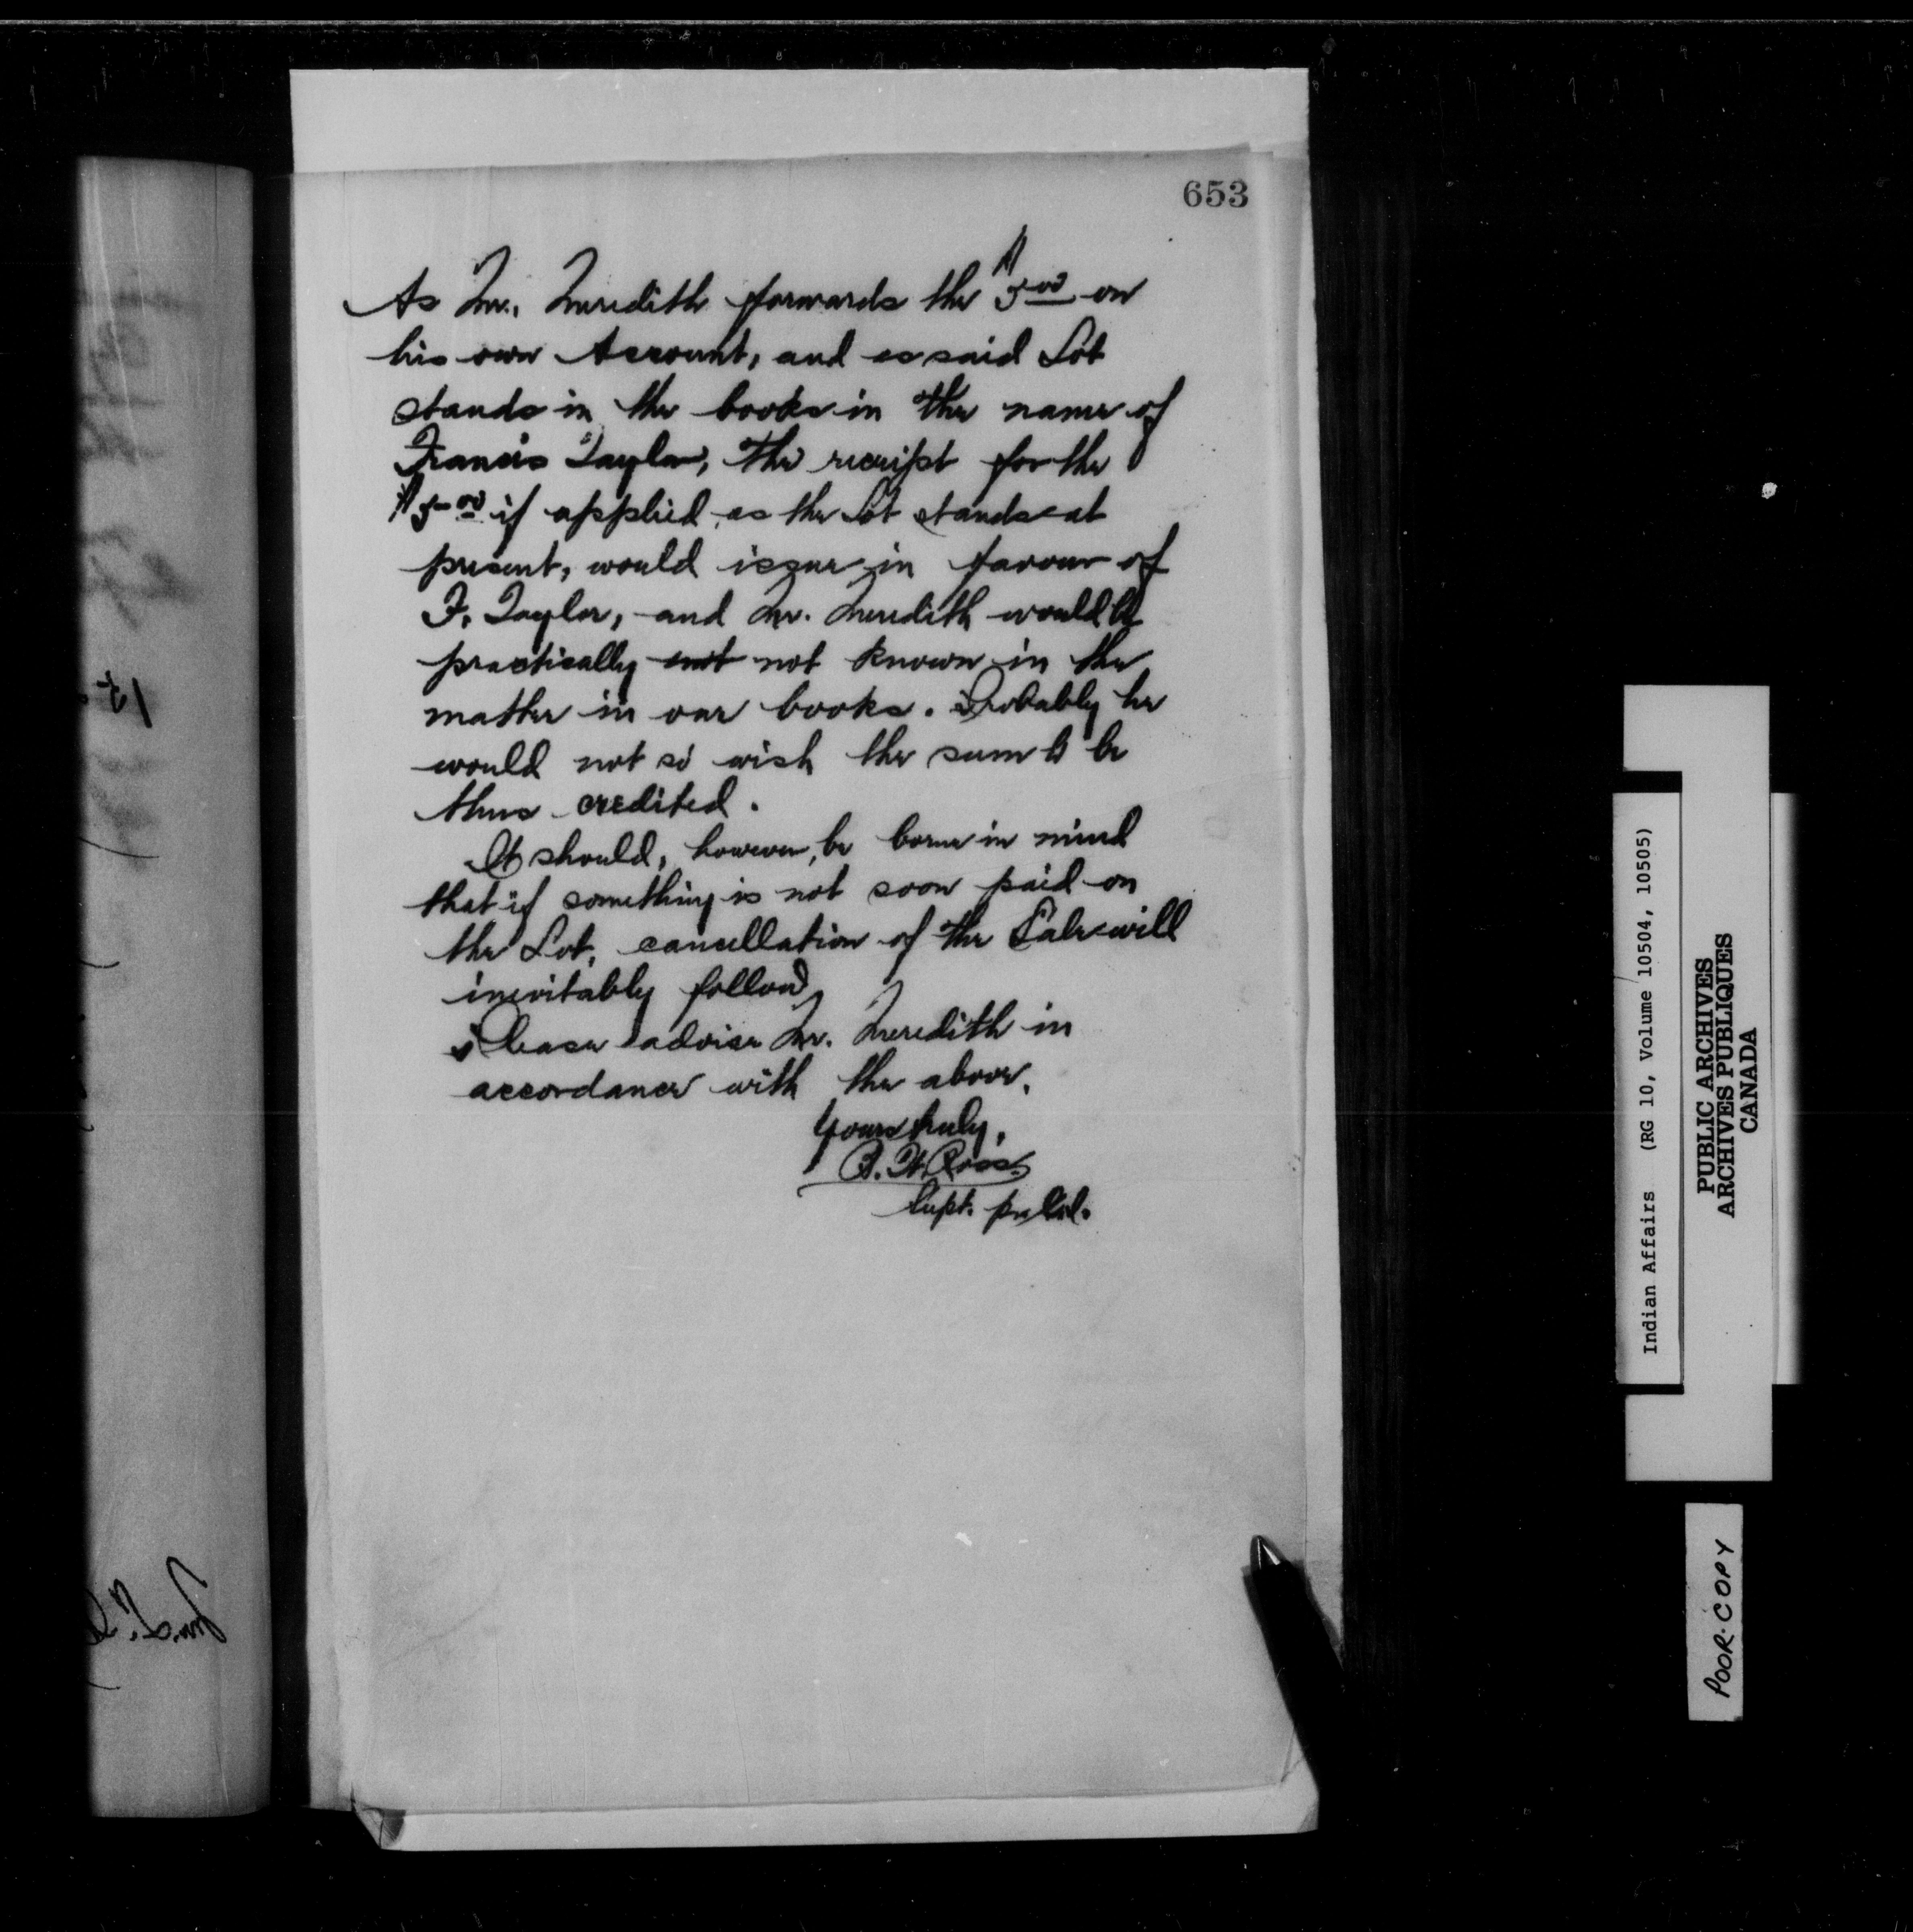 653
As Mr. Meredith forwards the $5.00 on
his own Account, and as said Lot
stands in the books in the name of
Francis Taylor, the receipt for the
$5.00 if applied, as the Lot stands at
present, would issue in favour of
F. Taylor, and Mr. Meredith would be
practically not known in the
matter in our books. Probably he
would not so wish the sum to be
thus credited.
It should, however, be borne in mind
that if something is not soon paid on
the Lot, cancellation of the Sale will
inevitably follow.
Please advise Mr. Meredith in
accordance with the above.
Yours truly,
B. W. Ross.
Supt.
Indian Affairs (RG 10, Volume 10504, 10505)
PUBLIC ARCHIVES
ARCHIVES PUBLIQUES
CANADA
POOR COPY